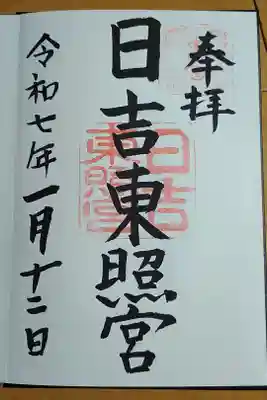 奉拝
日吉東照宮
日吉東照宮
令和七年一月十二日